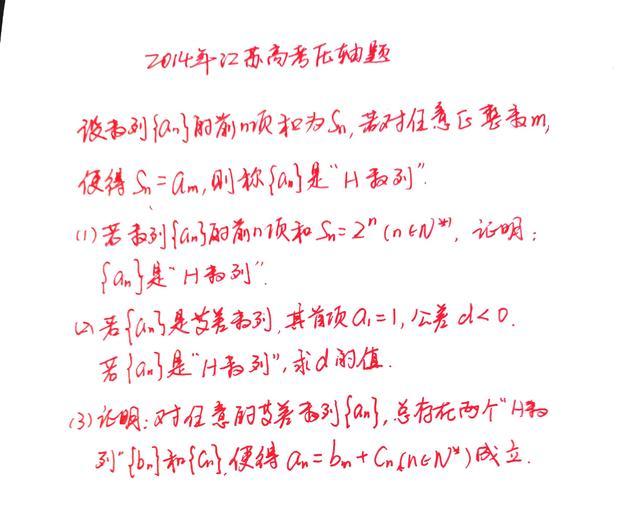 2014年江苏高考压轴题
设数列{an}的前n项和为Sn,若对任意正整数m,
使得Sn=am,则称{an}是"H数列".
(1)若数列{an}的前n项和Sn=2^n(n∈N*),证明:
{an}是"H数列".
(2)若{an}是等差数列,其首项a1=1,公差d<0.
若{an}是"H数列",求d的值.
(3)证明:对任意的等差数列{an},总存在两个"H数
列"{bn}和{cn},使得an=bn+Cn(n∈N*)成立.